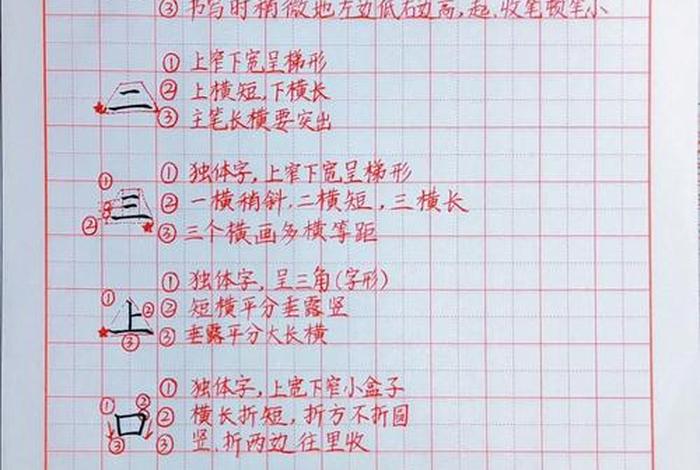 ③ 书写时稍微地左边低右边高,起.收笔顿笔小
① 上窄下宽呈梯形
二 ② 上横短,下横长
③ 主笔长横要突出
① 独体字,上窄下宽呈梯形
三 ② 一横稍斜.二横短,三横长
③ 三个横画多横等距
① 独体字,呈三角(字形)
上 ② 短横平分垂露竖
③ 垂露平分大长横
① 独体字,上宽下窄小盒子
口 ② 横长折短,折方不折圆
③ 竖.折两边往里收